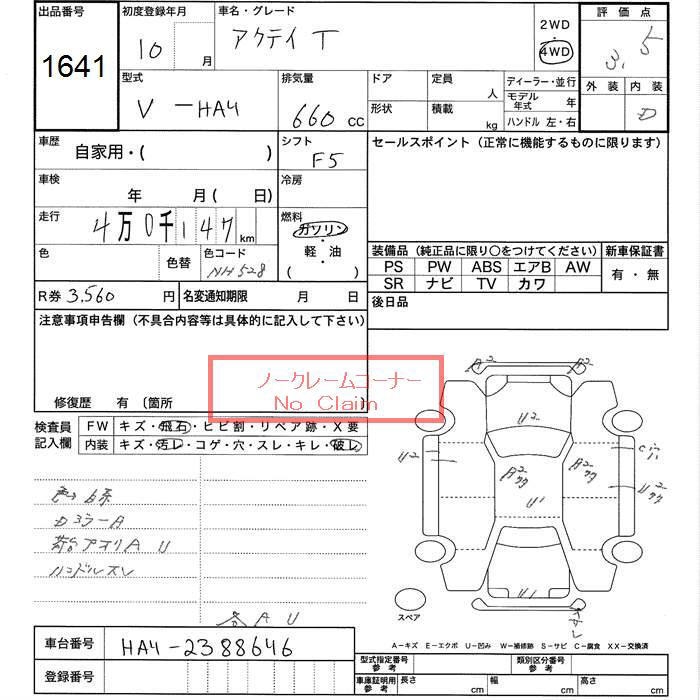 出品番号
1641
初度登録年月
10 月
車名・グレード
アクティ T
2WD
・
4WD
評価点
3.5
外装 内装
D
型式
V-HA4
排気量
660 cc
ドア
形状
定員 人
積載 kg
ディーラー・並行
モデル年式 年
ハンドル 左・右
車歴
自家用・( )
シフト
F5
セールスポイント(正常に機能するものに限ります)
車検
年 月( 日)
冷房
走行
4万0千147km
燃料
ガソリン
軽・油
( )
色
色替
色コード
NH528
装備品(純正品に限り○をつけてください)
新車保証書
PS PW ABS エアB AW
SR ナビ TV カワ
有・無
R券 3,560 円
名変通知期限 月 日
後日品
注意事項申告欄(不具合内容等は具体的に記入して下さい)
ノークレームコーナー
No Claim
修復歴 有(箇所 )
検査員記入欄
FW キズ・飛石・ヒビ割・リペア跡・X要
内装 キズ・汚レ・コゲ・穴・スレ・キレ・破レ
A2 A2
U2
U2
A2
A2
C穴
U2
U1
U1
ハンドルスレ
各AU
スペア
A-キズ E-エクボ U-凹み W-補修跡 S-サビ C-腐食 XX-交換済
車台番号
HA4-2388646
登録番号
型式指定番号参考
類別区分番号参考
車庫証明用参考
長さ cm
幅 cm
高さ cm